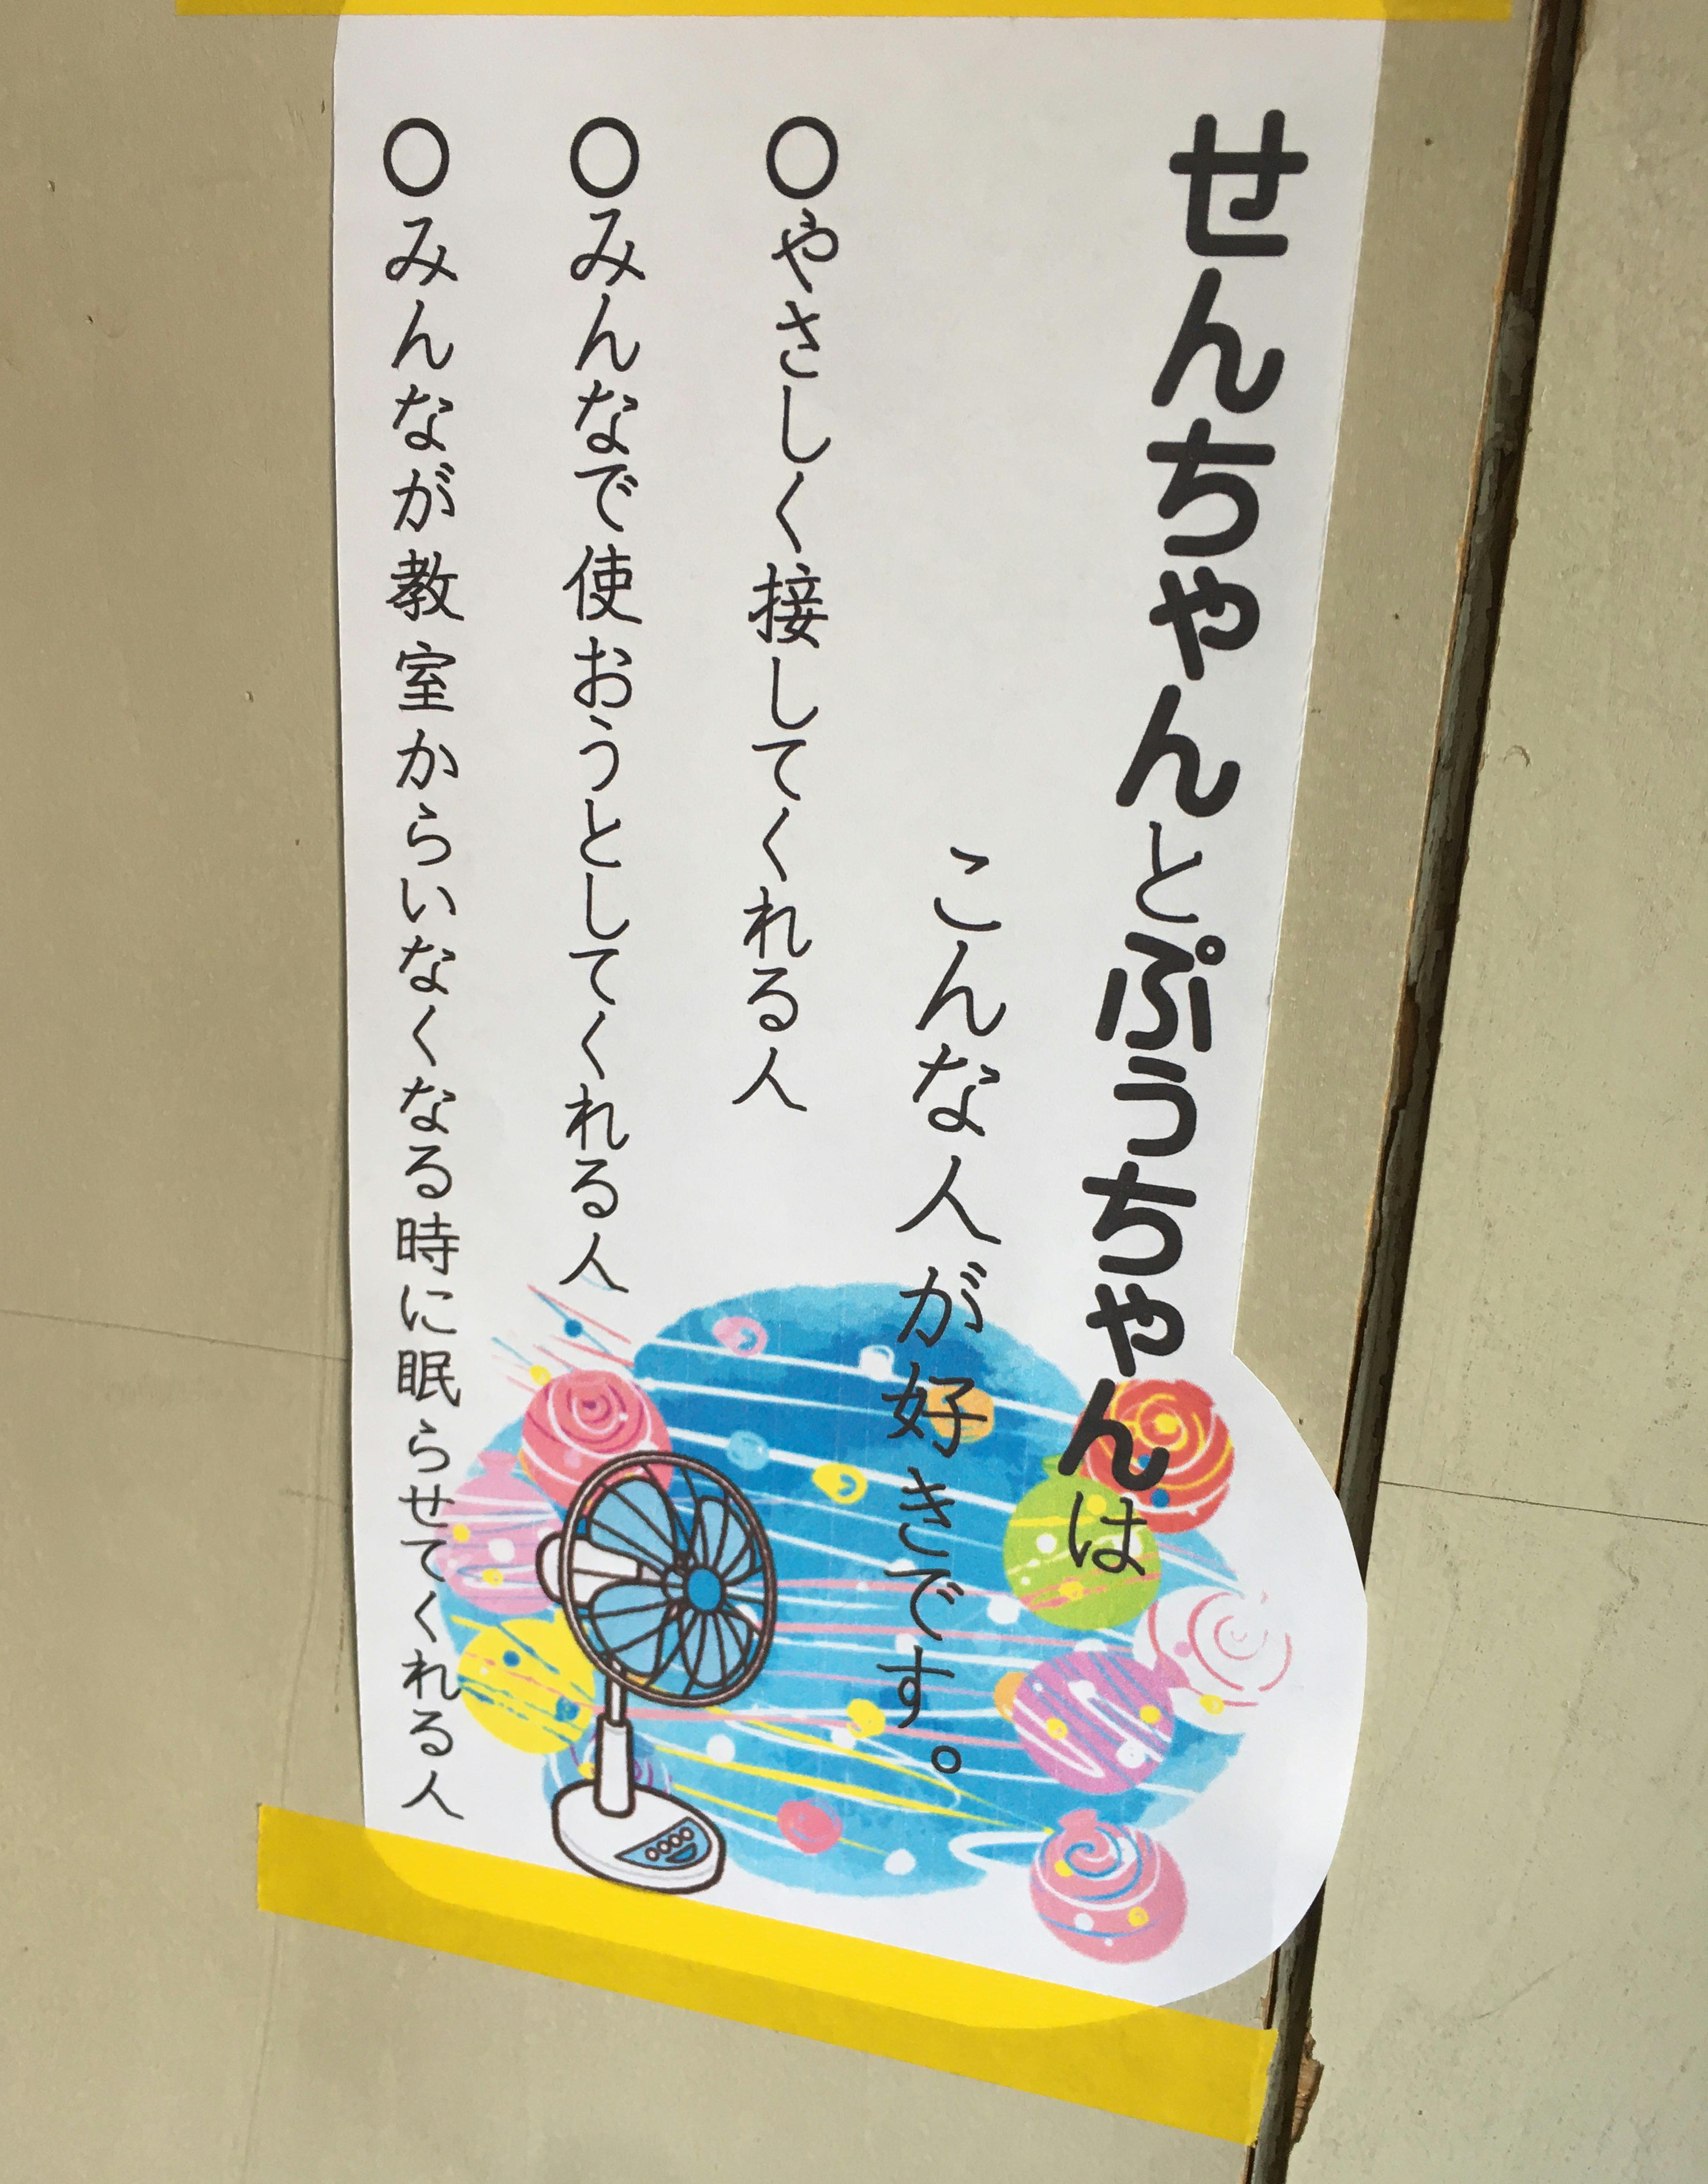 せんちゃんとぷぅちゃんは
こんな人が好きです。
〇やさしく接してくれる人
〇みんなで使おうとしてくれる人
〇みんなが教室からいなくなる時に眠らせてくれる人